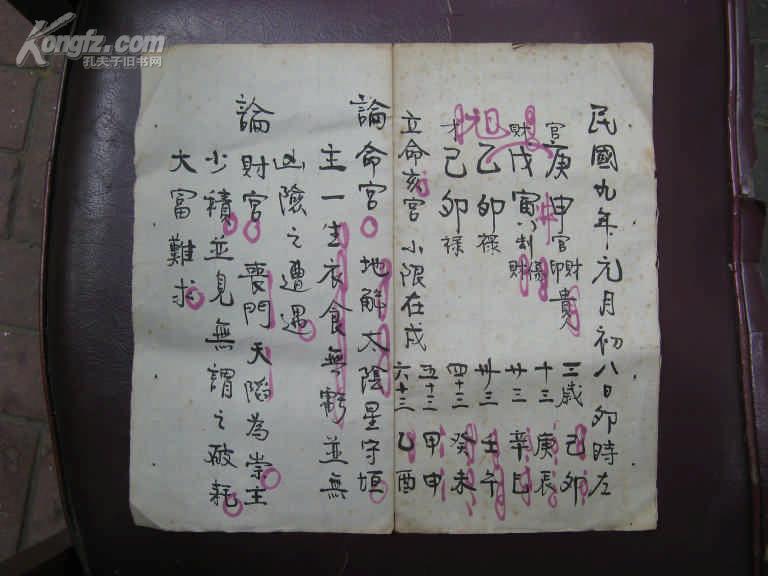 Kongfz.com
孔夫子旧书网
民國九年元月初八日卯時左
官庚申官印財貴
財戊寅劫傷財
旭
乙卯禄
才己卯禄
立命亥宮小限在戌
三歲己卯
十三庚辰
廿三辛巳
卅三壬午
四十三癸未
五十三甲申
六十三乙酉
論命宮地解太陰星守垣
主一生衣食無虧並無
凶險之遭遇
論財官喪門天陷為祟主
少積並見無謂之破耗
大富難求